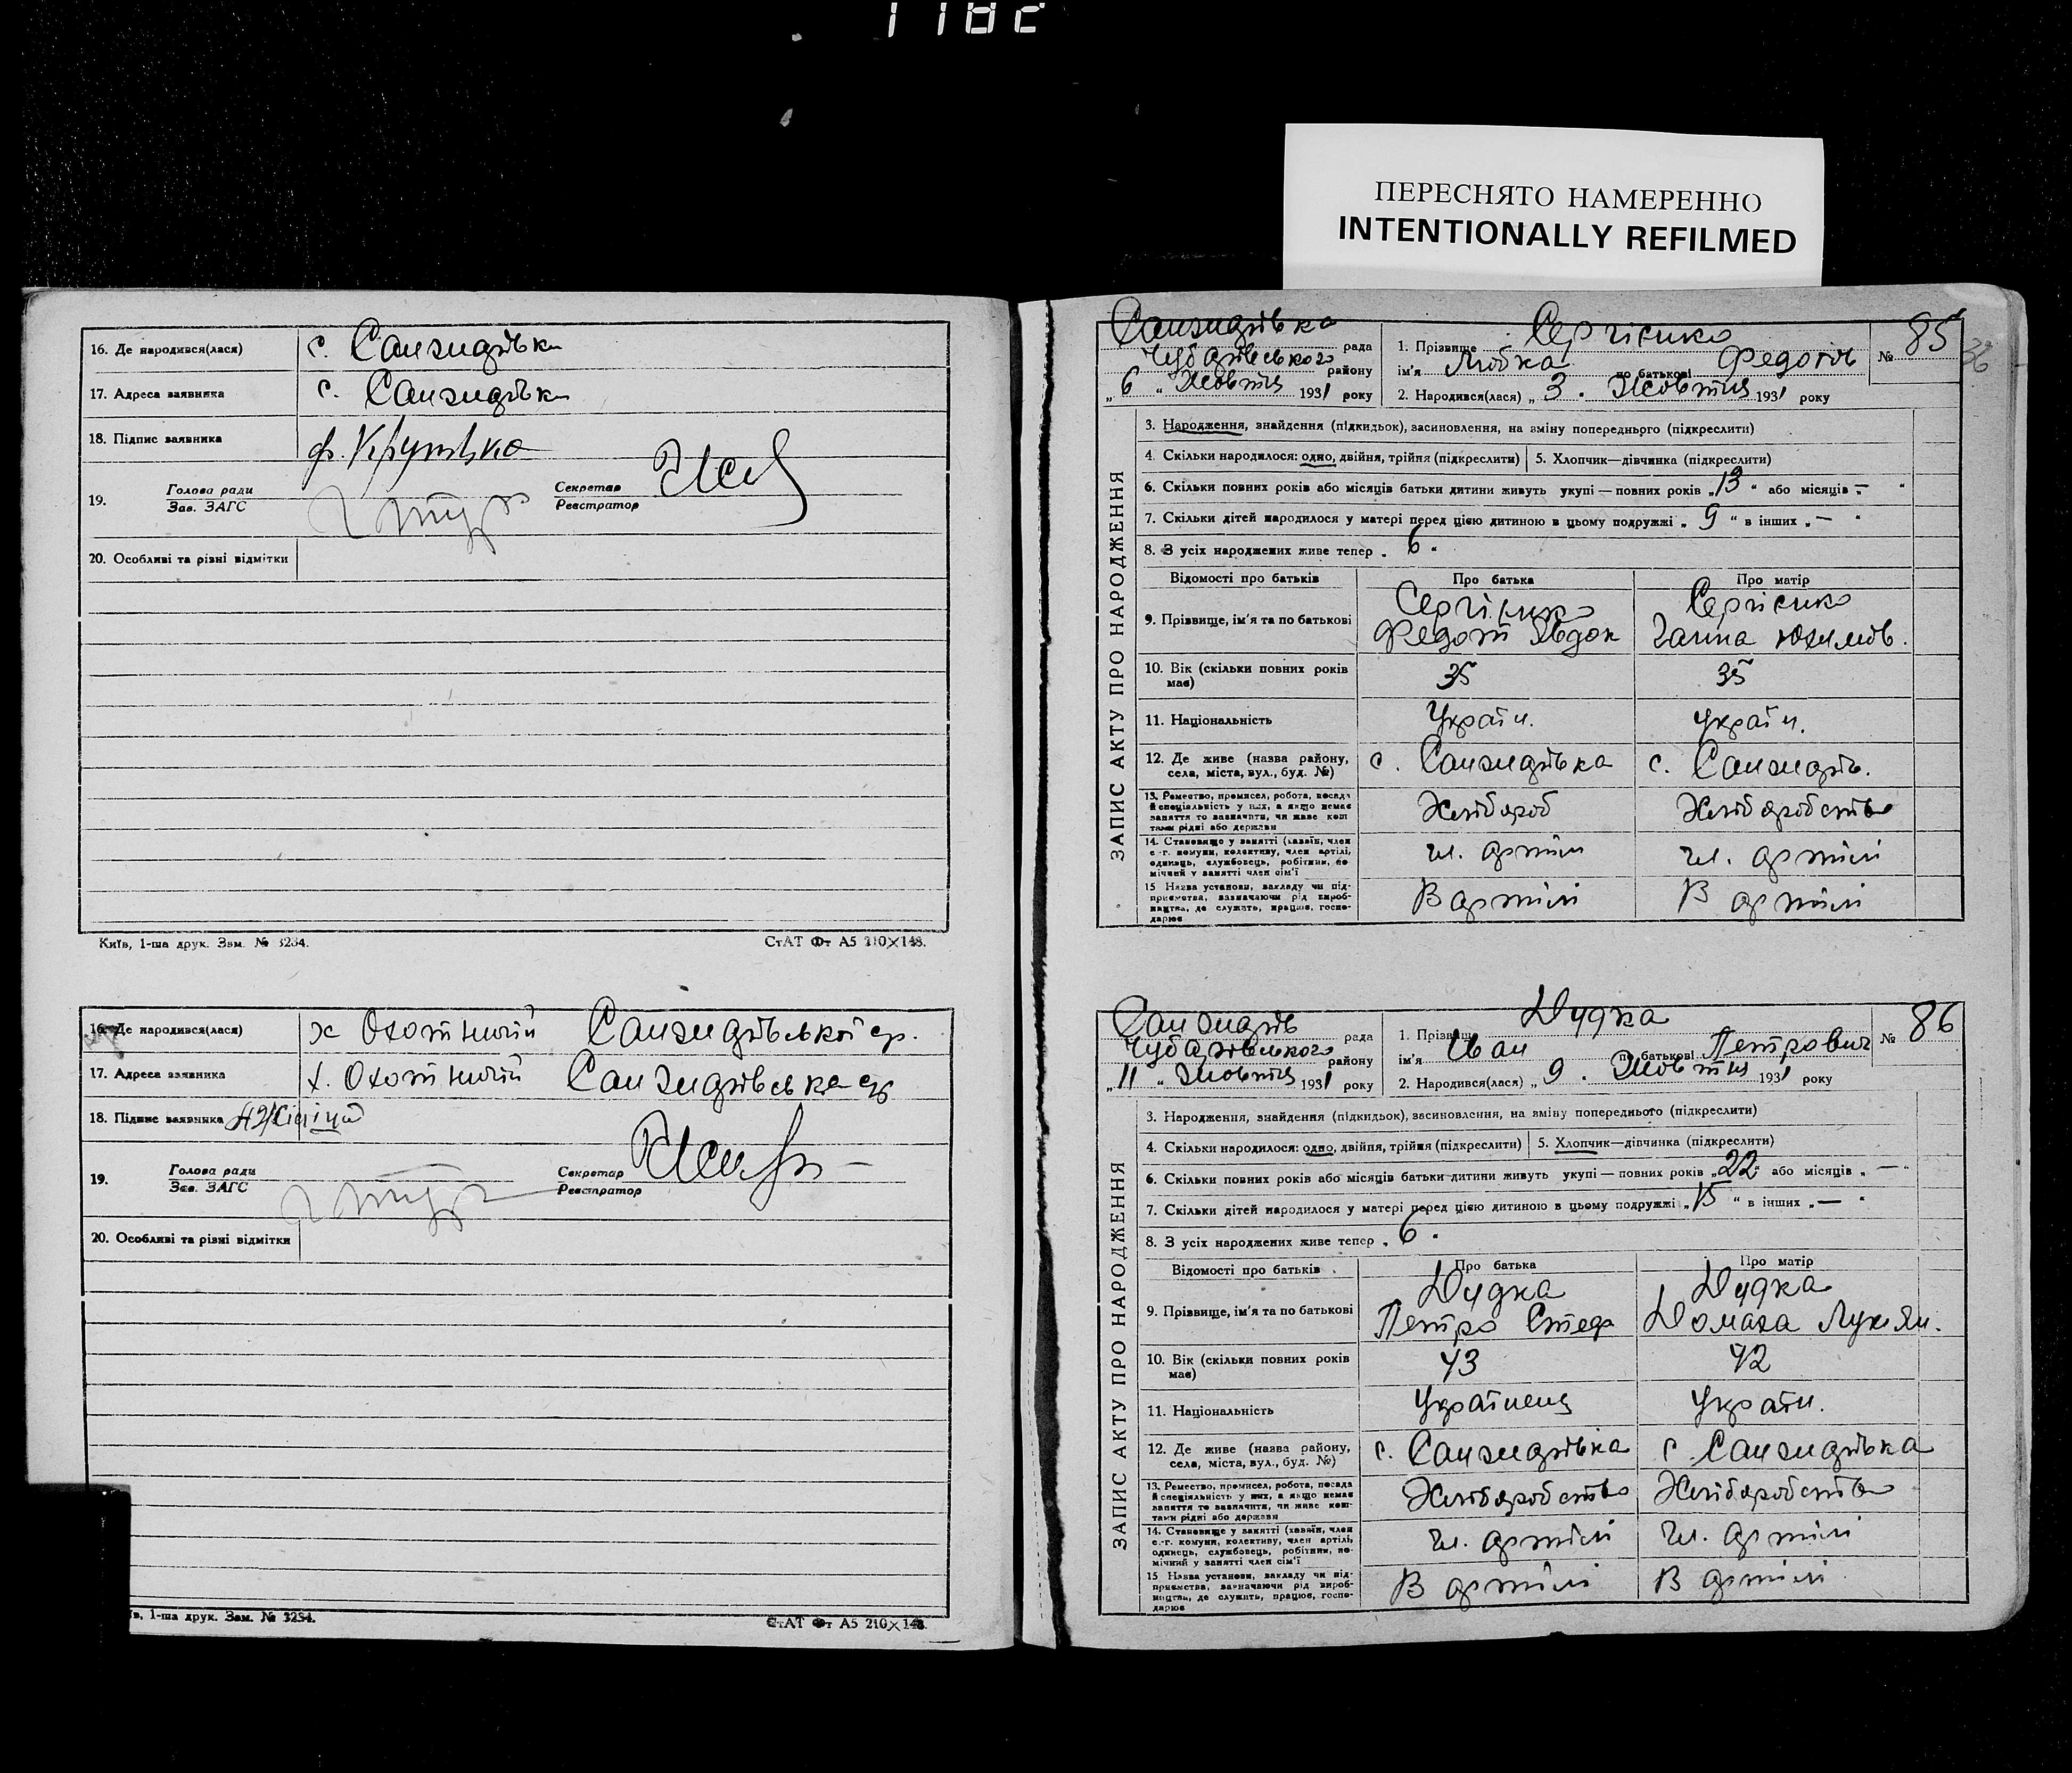 1182
ПЕРЕСНЯТО НАМЕРЕННО
INTENTIONALLY REFILMED
16. Де народився(лася) с. Санжидівка
17. Адреса заявника с. Санжидівка
18. Підпис заявника
19. Голова ради
Зав. ЗАГС
Секретар
Реєстратор
20. Особливі та різні відмітки
Київ, 1-ша друк. Зам. № 3234.
СтАТ Фт А5 210×148.
16. Де народився(лася) х Охотничій Санжидівської ср.
17. Адреса заявника х. Охотничій Санжидівська
18. Підпис заявника
19. Голова ради
Зав. ЗАГС
Секретар
Реєстратор
20. Особливі та різні відмітки
їв, 1-ша друк. Зам. № 3234.
СтАТ Фт А5 210×148.
ЗАПИС АКТУ ПРО НАРОДЖЕННЯ
Санжидівка рада
Чубарівського району
„6“ Жовтня 1931 року
1. Прізвище Сергієнко
ім'я Любка по батькові Федотів
2. Народився(лася) „3. Жовтня 1931 року
№ 85
36
3. Народження, знайдення (підкидьок), засиновлення, на зміну попереднього (підкреслити)
4. Скільки народилося: одно, двійня, трійня (підкреслити) 5. Хлопчик—дівчинка (підкреслити)
6. Скільки повних років або місяців батьки дитини живуть укупі — повних років „13“ або місяців „—“
7. Скільки дітей народилося у матері перед цією дитиною в цьому подружжі „9“ в інших „—“
8. З усіх народжених живе тепер „6“
Відомості про батьків Про батька Про матір
9. Прізвище, ім'я та по батькові Сергієнко Сергієнко
Федот Явдок Ганна Юхимов.
10. Вік (скільки повних років має) 35 35
11. Національність Україн. україн.
12. Де живе (назва району, села, міста, вул., буд. №) с. Санжидівка с. Санжидів.
13. Ремество, промисел, робота, посада й спеціяльність у них, а якщо немає заняття то зазначити, чи живе коштами рідні або держави Хлібороб Хліборобство
14. Становище у занятті (хазяїн, член с.-г. комуни, колективу, член артілі, одинець, службовець, робітник, помічний у занятті член сім'ї чл. артілі чл. артілі
15 Назва установи, закладу чи підприємства, зазначаючи рід виробництва, де служить, працює, господарює В артілі В артілі
ЗАПИС АКТУ ПРО НАРОДЖЕННЯ
Санжидів рада
Чубарівського району
„11“ Жовтня 1931 року
1. Прізвище Дудка
ім'я Іван по батькові Петрович
2. Народився(лася) „9. Жовтня 1931 року
№ 86
3. Народження, знайдення (підкидьок), засиновлення, на зміну попереднього (підкреслити)
4. Скільки народилося: одно, двійня, трійня (підкреслити) 5. Хлопчик—дівчинка (підкреслити)
6. Скільки повних років або місяців батьки дитини живуть укупі — повних років „22“ або місяців „—“
7. Скільки дітей народилося у матері перед цією дитиною в цьому подружжі „15“ в інших „—“
8. З усіх народжених живе тепер „6“
Відомості про батьків Про батька Про матір
9. Прізвище, ім'я та по батькові Дудка Дудка
Петро Стеф Домаха Лукян.
10. Вік (скільки повних років має) 43 42
11. Національність Українець Україн.
12. Де живе (назва району, села, міста, вул., буд. №) с. Санжидівка с. Санжидівка
13. Ремество, промисел, робота, посада й спеціяльність у них, а якщо немає заняття то зазначити, чи живе коштами рідні або держави Хліборобство Хліборобство
14. Становище у занятті (хазяїн, член с.-г. комуни, колективу, член артілі, одинець, службовець, робітник, помічний у занятті член сім'ї чл. артілі чл. артілі
15 Назва установи, закладу чи підприємства, зазначаючи рід виробництва, де служить, працює, господарює В артілі В артілі